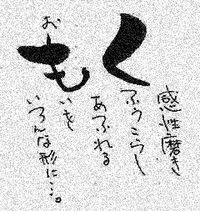 感性磨き
くふうこらし
あふれる
おもいを
いろんな形に…。